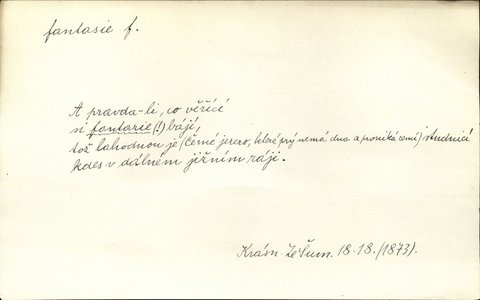 fantasie f.
A pravda-li, co věřící
si fantasie (!) bájí,
tož lahodnou je (Černé jezero, které prý nemá dna a proniká zemi) studnicí
kdes v dálném jižním ráji.
Krásn. Ze Šum. 18.18. (1873).